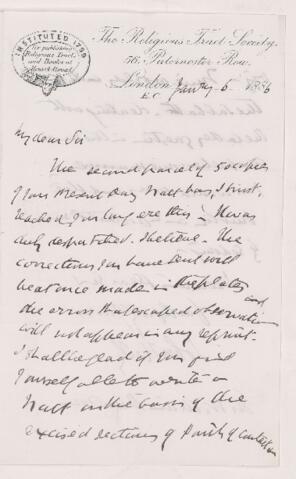 INSTITUTED 1799
for publishing
Religious Tracts
and Books at
The Religious Tract Society,
56, Paternoster Row,
London Jan'ry 5 1886
E.C.
My dear Sir
The second parcel of 50 copies
of your Present Day Tract has, I trust,
reached you long ere this. It was
duly despatched. The
corrections you have sent will
be at once made in the plates and
the errors that escaped observation
will not appear in any reprint.
I shall be glad if you find
yourself able to write a
Tract on the basis of the
excised sections of Points of Contact